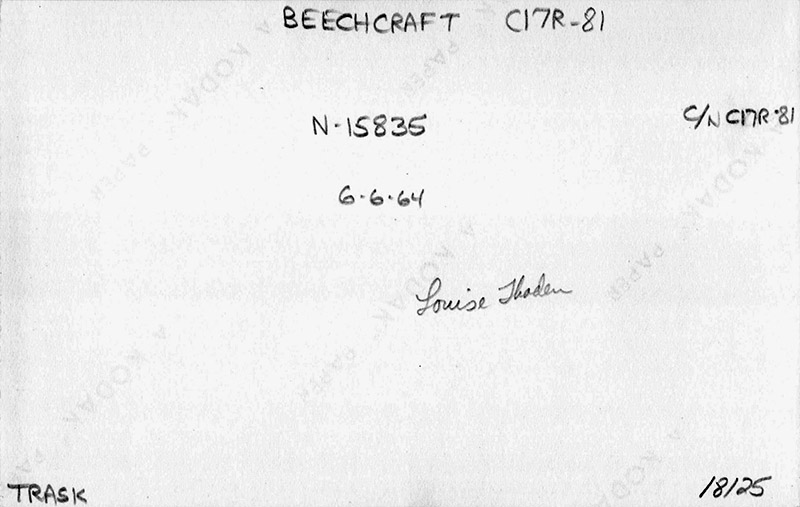 BEECHCRAFT C17R-81
N-15835
C/N C17R-81
6-6-64
Louise Thaden
TRASK
18125
A KODAK PAPER
A KODAK PAPER
A KODAK PAPER
A KODAK PAPER